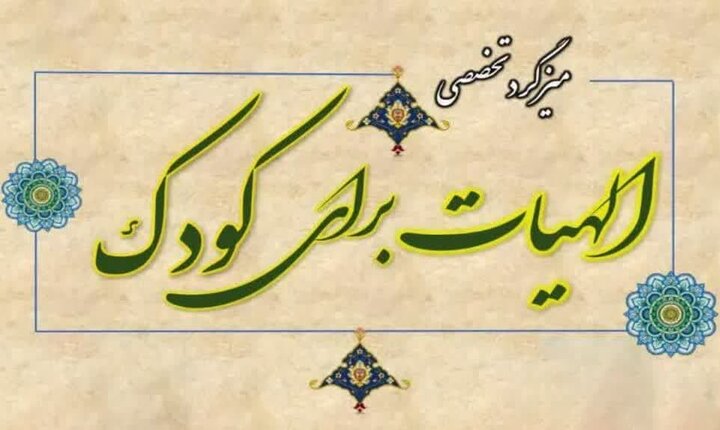 میزگرد تخصصی
الهیات برای کودک